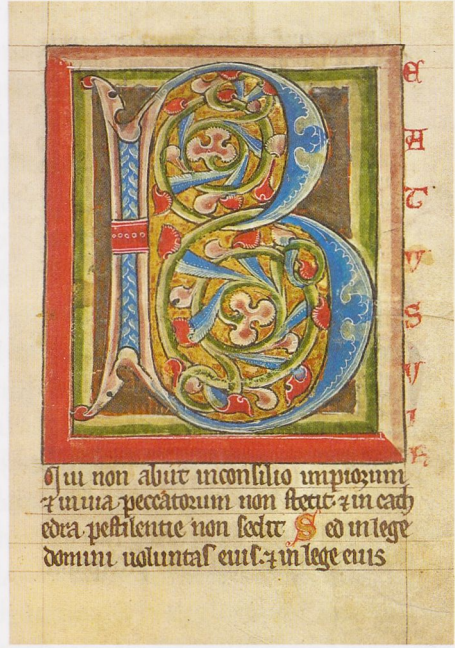 B
E
A
T
V
S
V
I
R
Qui non abiit inconsilio impiorum
⁊ inuia peccatorum non stetit· ⁊ in cath
edra pestilentie non sedit S ed in lege
domini uoluntas eius· ⁊ in lege eius